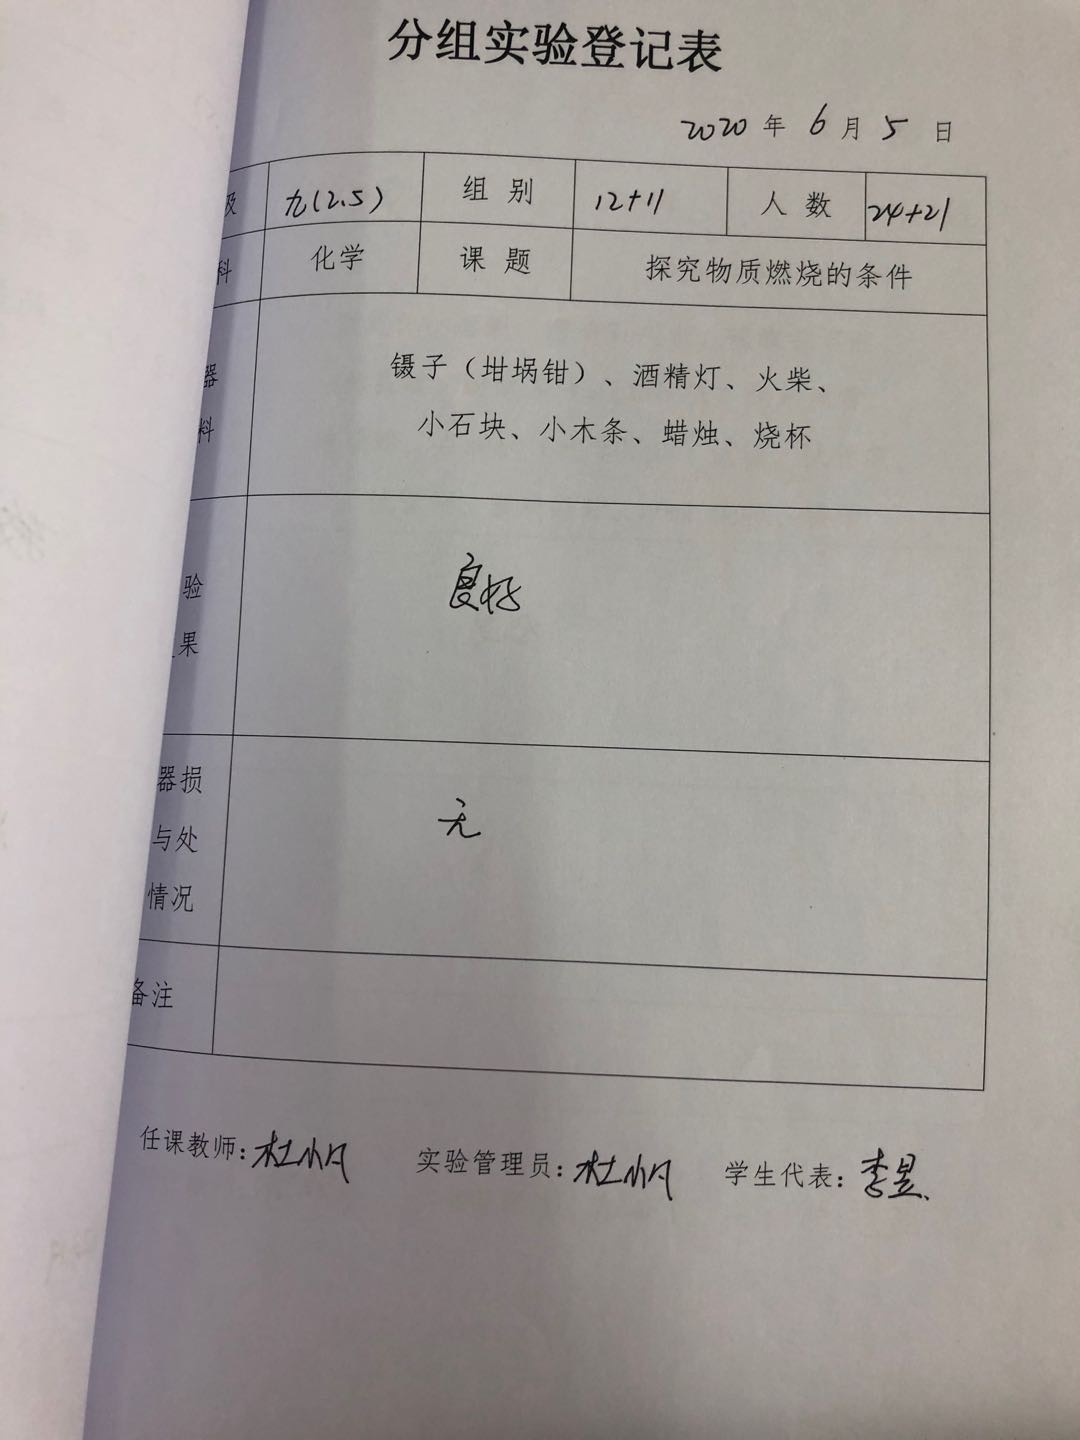 分组实验登记表
2020 年 6 月 5 日
级 九(2.5) 组 别 12+11 人 数 24+21
科 化学 课 题 探究物质燃烧的条件
器
料
镊子（坩埚钳）、酒精灯、火柴、
小石块、小木条、蜡烛、烧杯
验
果
良好
器损
与处
情况
无
备注
任课教师：杜小凡 实验管理员：杜小凡 学生代表：李昱